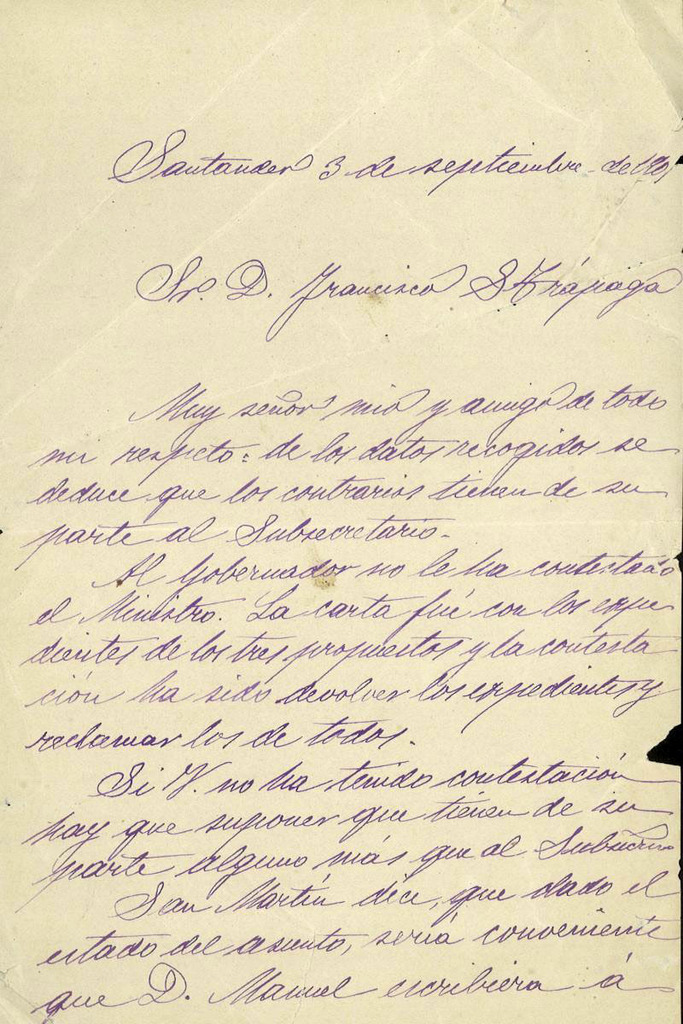 Santander 3 de septiembre de 1901
Sr. D. Francisco S Trápaga
Muy señor mio y amigo de todo
mi respeto: de los datos recogidos se
deduce que los contrarios tienen de su
parte al Subsecretario.
Al Gobernador no le ha contestado
el Ministro. La carta fué con los expe
dientes de los tres propuestos y la contesta
ción ha sido devolver los expedientes y
reclamar los de todos.
Si V. no ha tenido contestación
hay que suponer que tienen de su
parte alguno más que al
San Martín dice, que dado el
estado del asunto, sería conveniente
que D. Manuel escribiera á